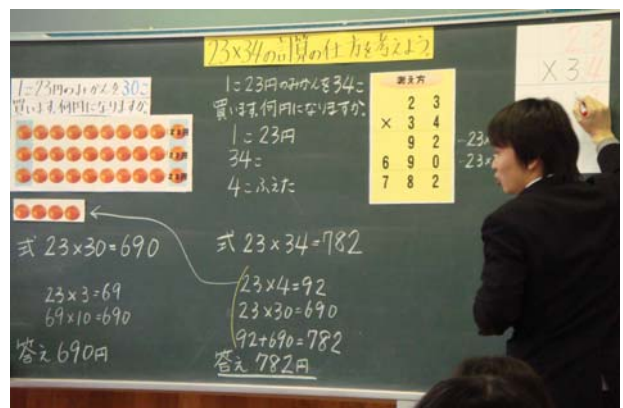 23×34の計算の仕方を考えよう。
1こ23円のみかんを30こ
買います。何円になりますか。
23円
23円
23円
式 23×30=690
23×3=69
69×10=690
答え 690円
1こ23円のみかんを34こ
買います。何円になりますか。
1こ 23円
34こ
4こふえた
式 23×34=782
23×4=92
23×30=690
92+690=782
答え 782円
考え方
2 3
× 3 4
9 2
6 9 0
7 8 2
-23×
-23×
23
×34